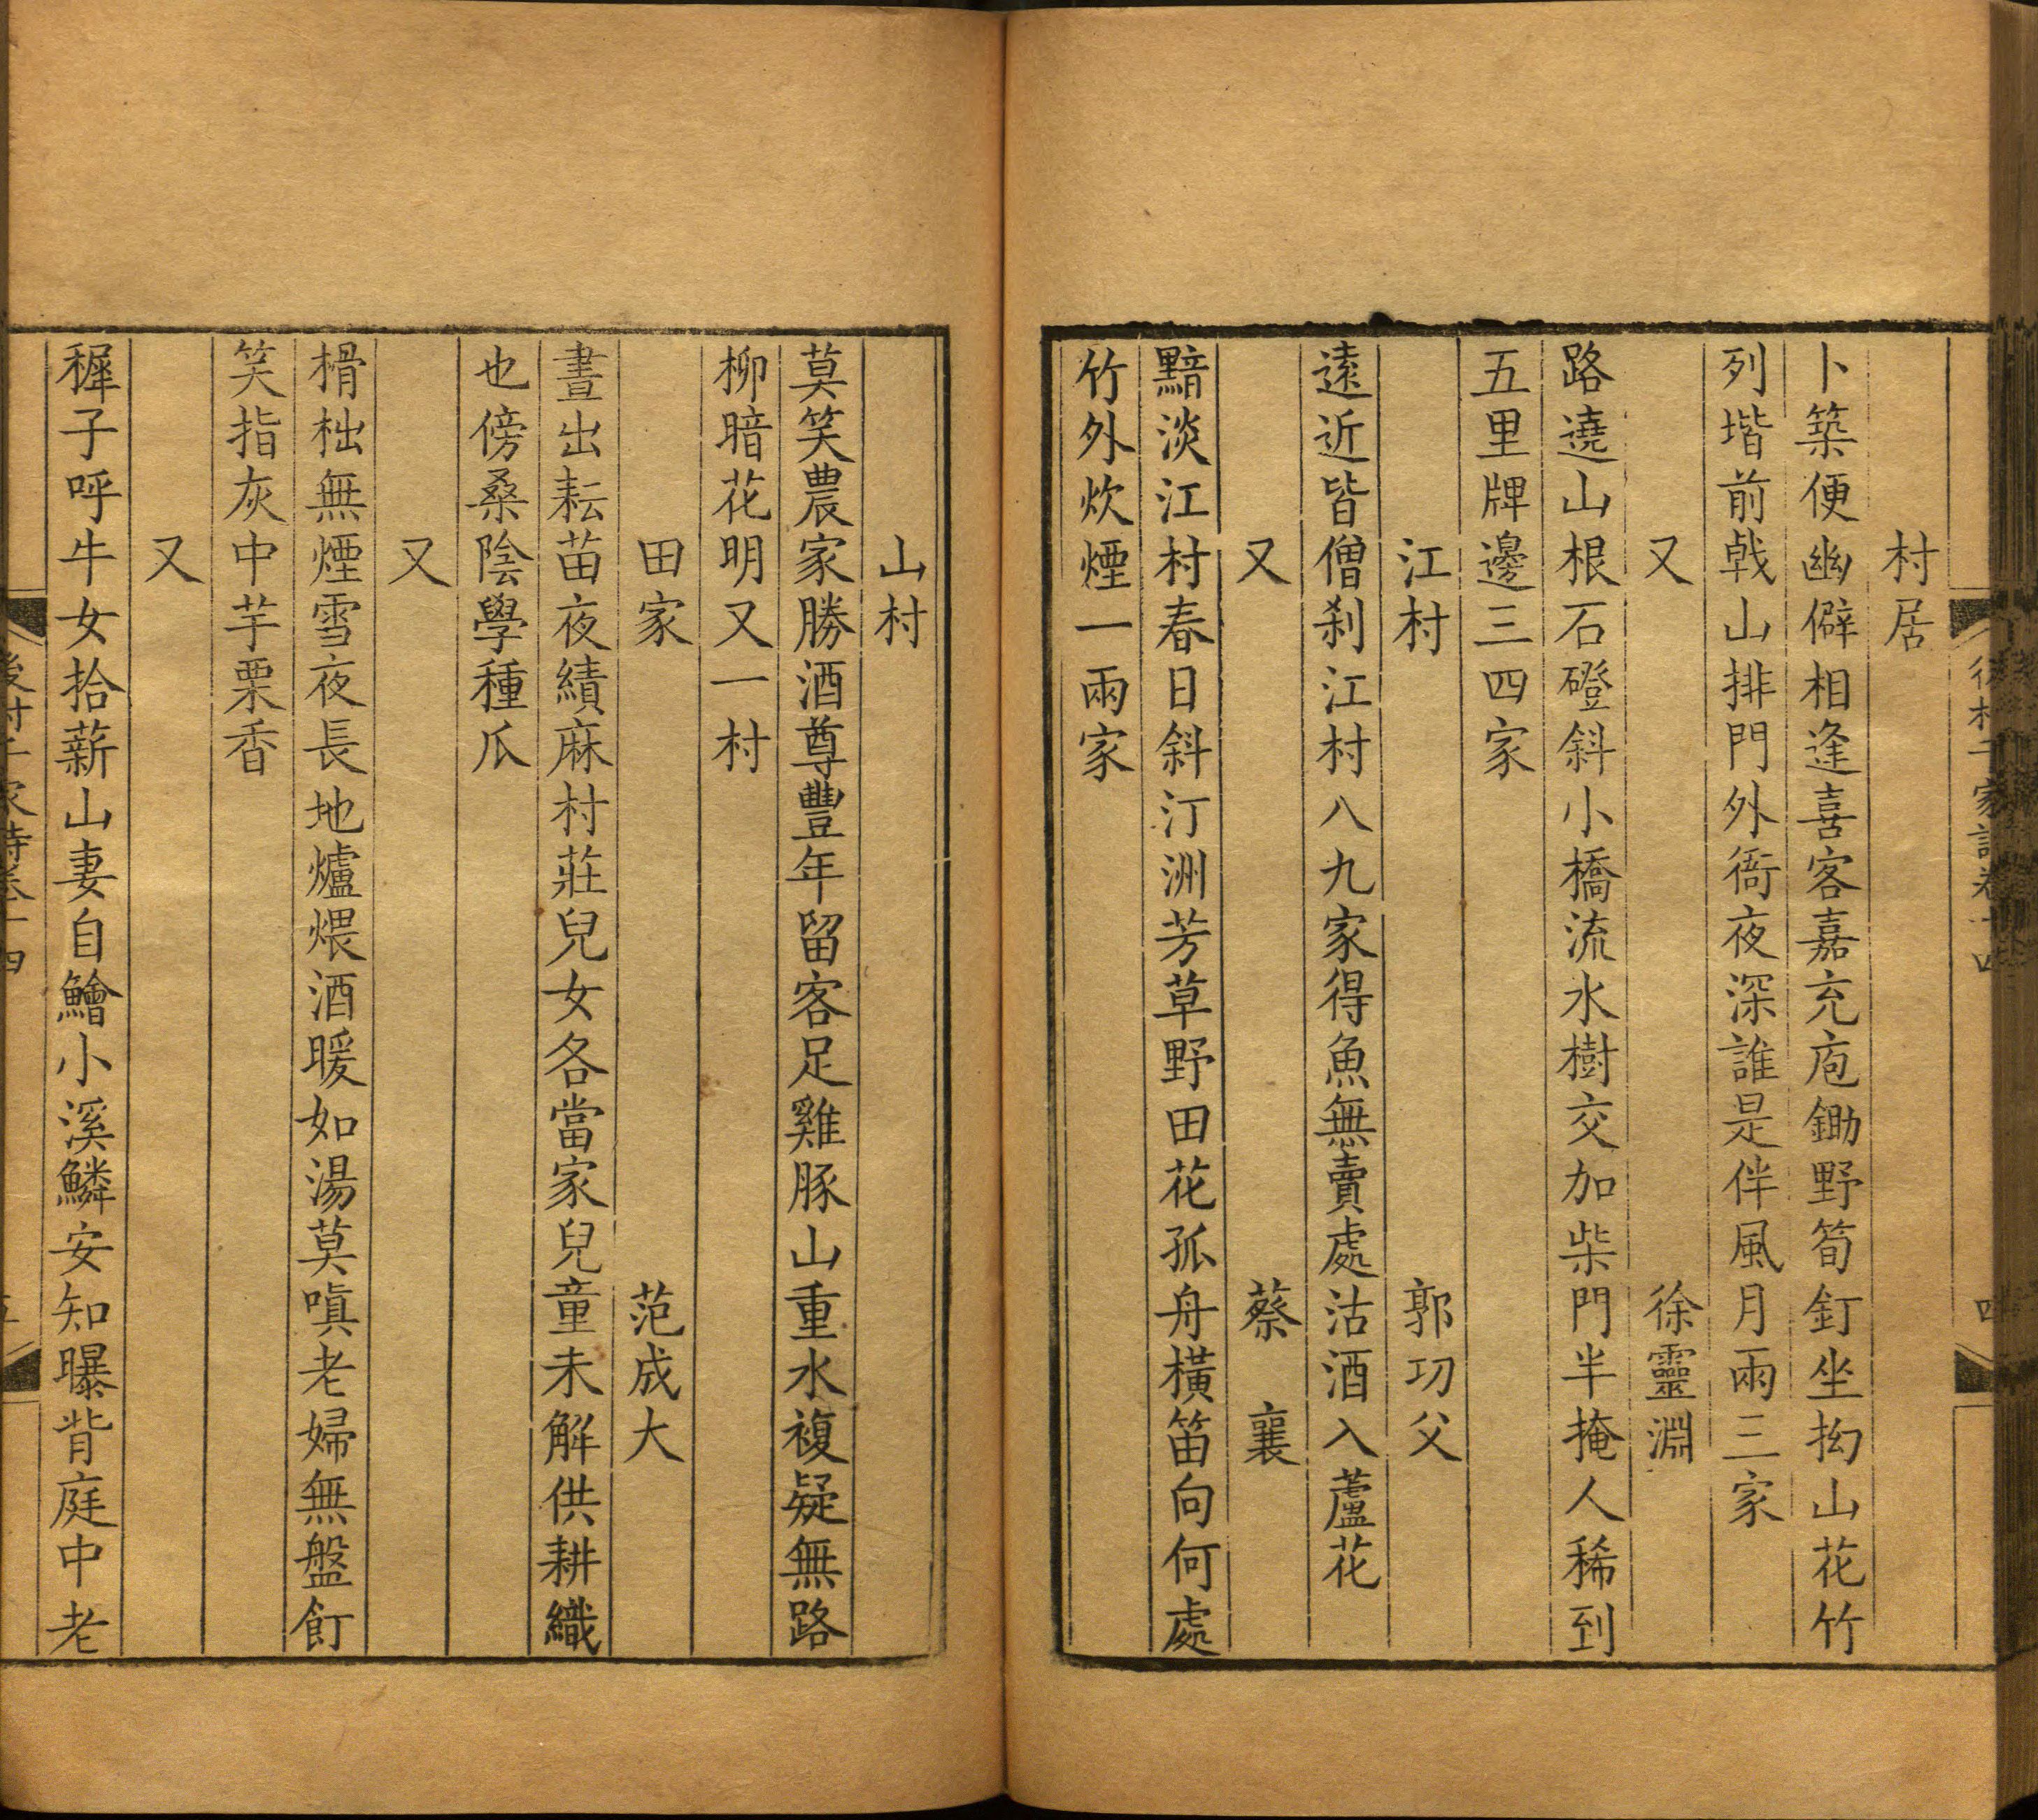 村居
卜築便幽僻相逢喜客嘉充庖鋤野筍釘坐拗山花竹
列堦前戟山排門外衙夜深誰是伴風月兩三家
又 徐靈淵
路遶山根石磴斜小橋流水樹交加柴門半掩人稀到
五里牌邊三四家
江村 郭功父
遠近皆僧刹江村八九家得魚無賣處沽酒入蘆花
又 蔡襄
黯淡江村春日斜汀洲芳草野田花孤舟橫笛向何處
竹外炊煙一兩家
山村
莫笑農家勝酒尊豐年留客足雞豚山重水複疑無路
柳暗花明又一村
田家 范成大
晝出耘苗夜績麻村莊兒女各當家兒童未解供耕織
也傍桑陰學種瓜
又
榾柮無煙雪夜長地爐煨酒暖如湯莫嗔老婦無盤飣
笑指灰中芋栗香
又
穉子呼牛女拾薪山妻自鱠小溪鱗安知曝背庭中老
後村千家詩卷十四